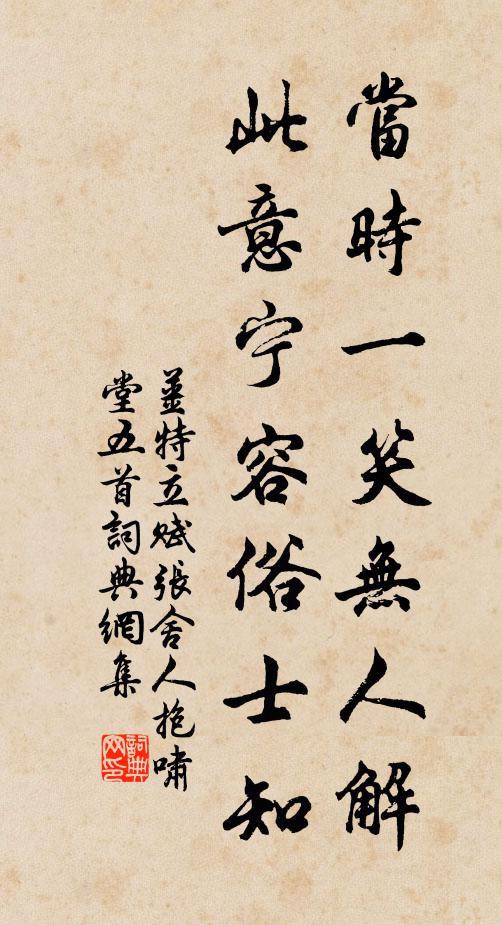 當時一笑無人解
此意宁容俗士知
姜特立賦張舍人抱嘯
堂五首詞典網集
詞典網印